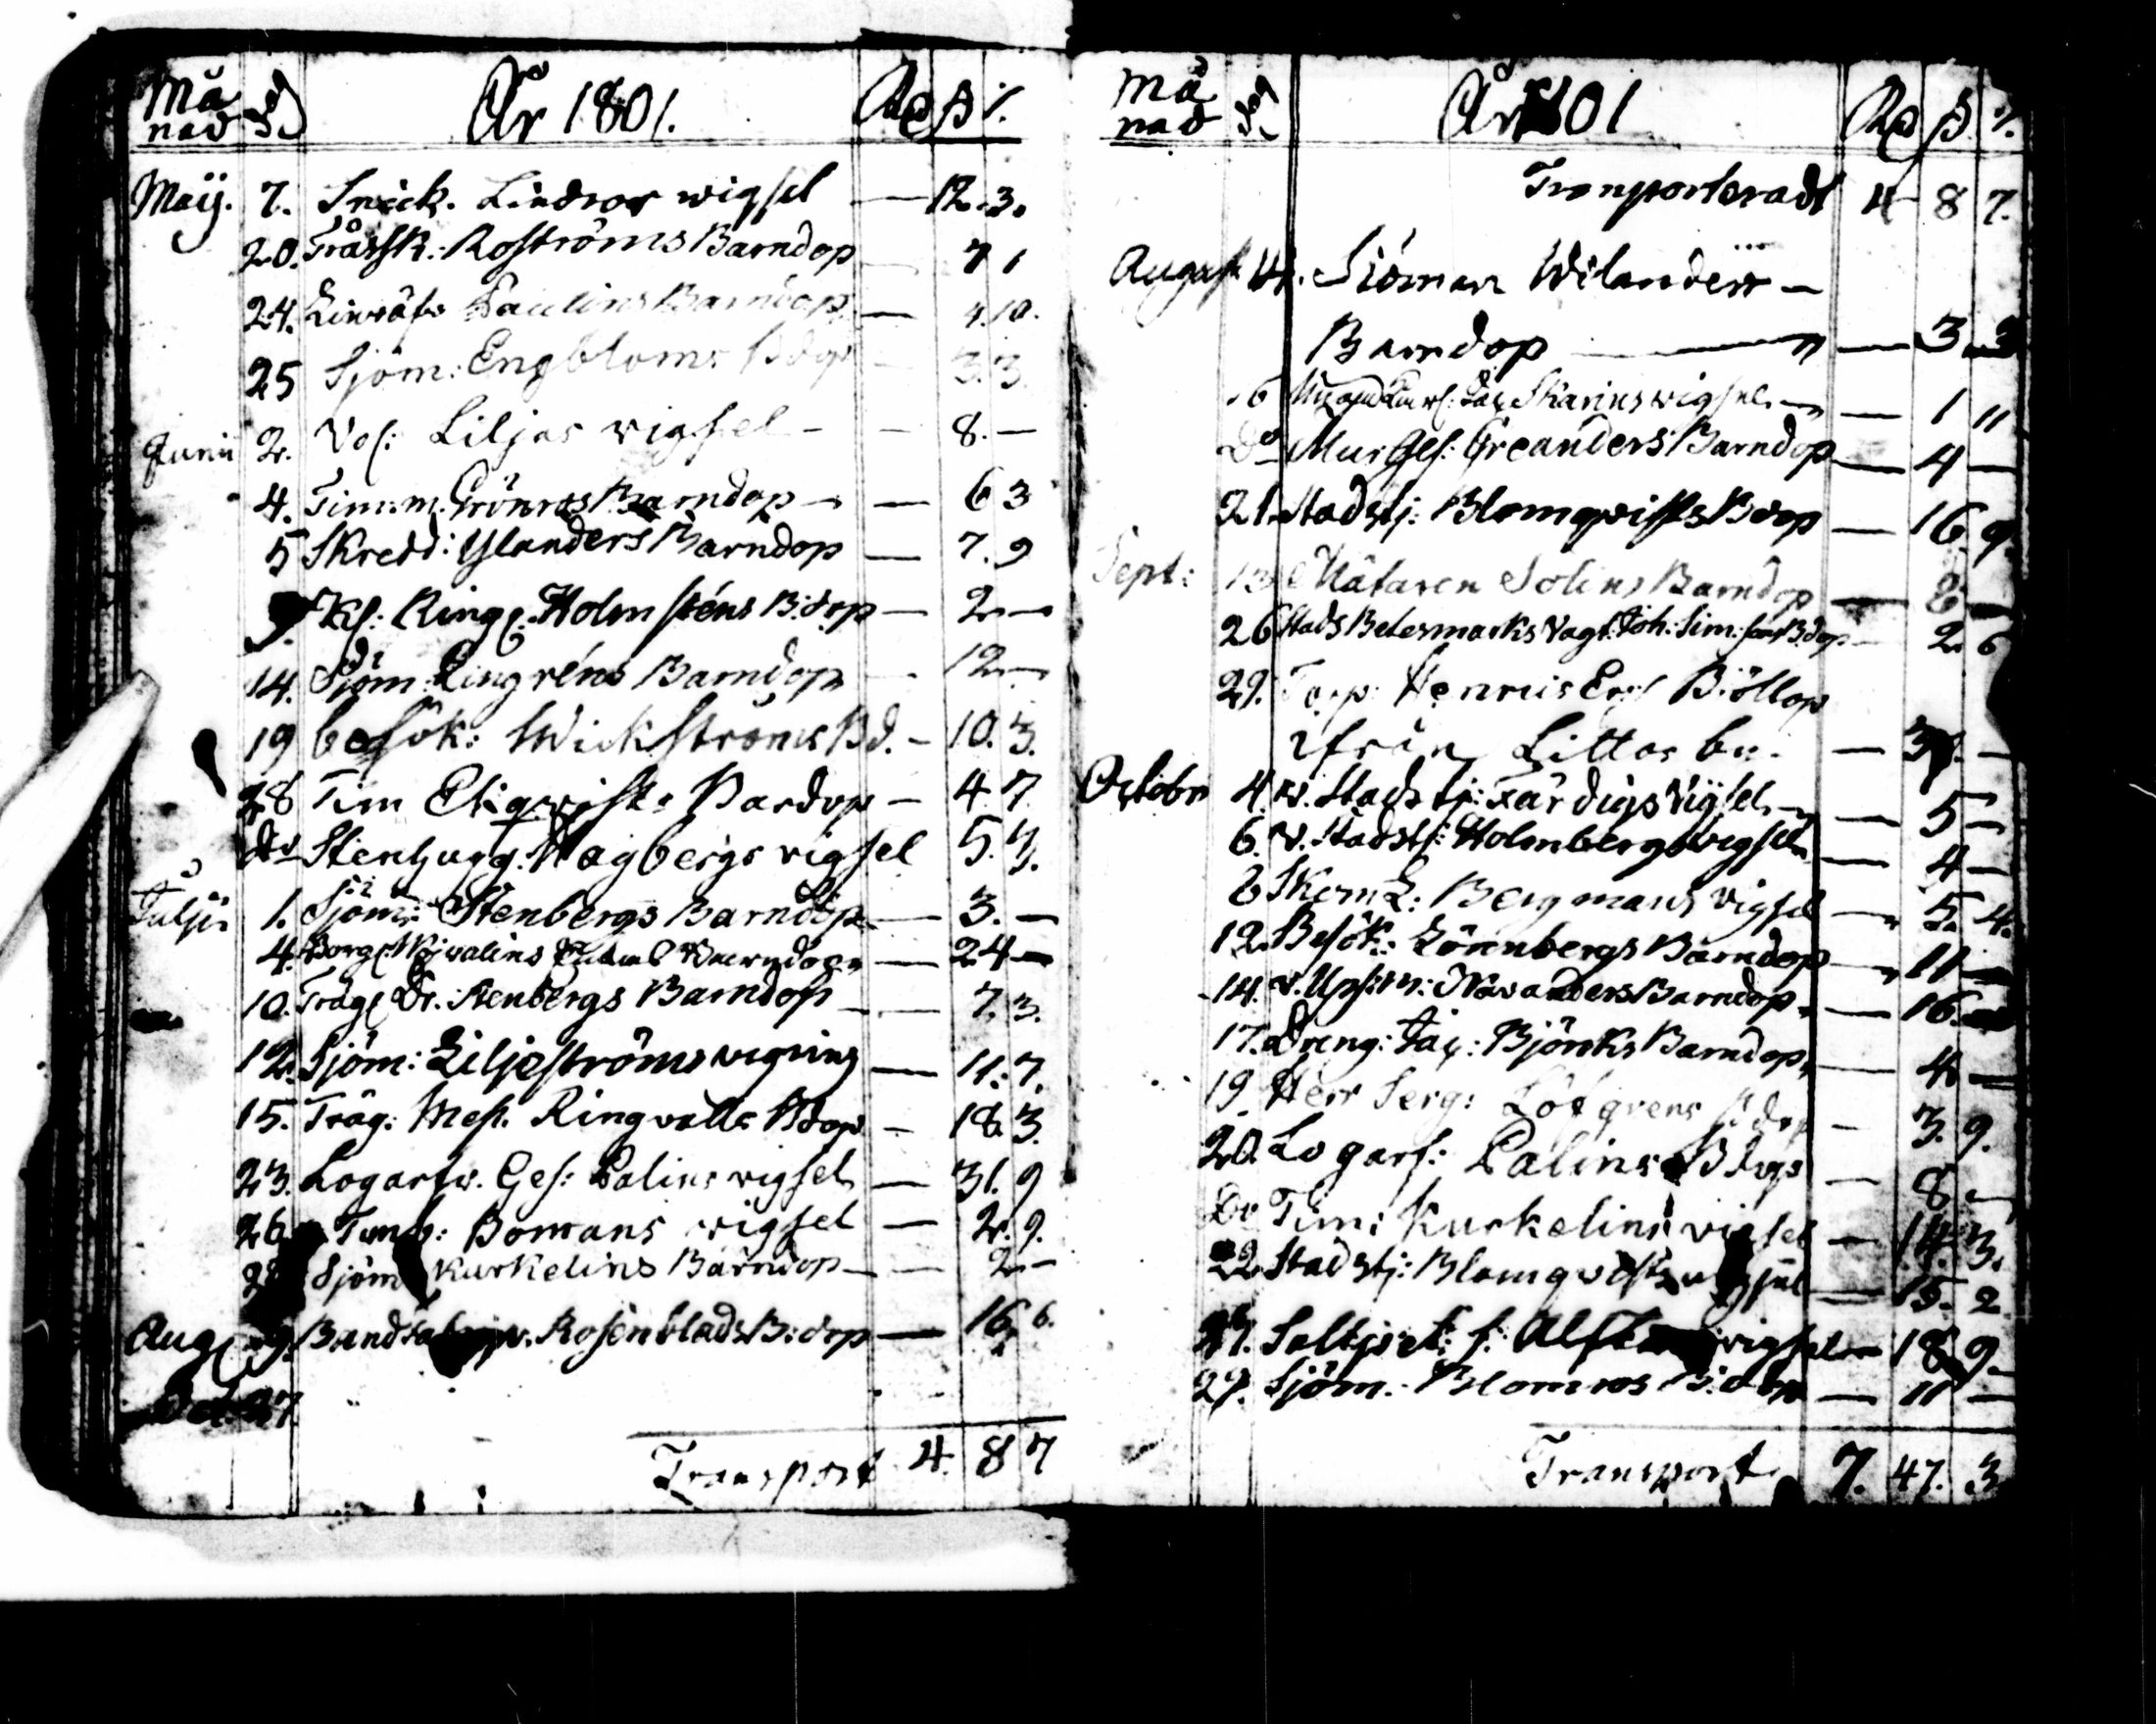 Må
nad
År 1801.
Rd ß /.
Maij. 7. Snick. Lindros wigsel — 12. 3.
20. Tråssk: Roströms Barndop 7 1
24. Paulins Barndop — 4. 10.
25 Sjöm: Engbloms Bdop 3. 3.
Junii 2. Vol: Liljas vigsel — 8. —
4. Tim: m: Grönros Barndop — 6 3
5 Skredd: Ylanders Barndop — 7. 9
9. Kl: Ring: Holmsténs B:dop — 2 —
14. Sjöm: Lingréns Barndop — 12 —
19 besök: Wickströms Bd. — 10. 3.
28 Tim Ekqvists Bardop — 4 7.
do Stenhugg: Hagbergs vigsel 5. 3.
Julji 1. Sjöm: Stenbergs Barndop — 3. —
4. Borg: Barndop — 24 —
10. Träg: Dr: Stenbergs Barndop — 7. 3.
12. Sjöm: Liljeströms vigning — 11. 7.
15. Träg: Mest. Ringvalls Bdop — 18. 3.
23. Logarfv. Ges: Palins vigsel — 31. 9
26 Timb: Bomans vigsel — 2. 9.
28 Sjöm Kurkelins Barndop — 2 —
Aug 9. Rosenblads B:dop — 16 6.
27
Transport 4. 8 7
Må
nad
dag
År 1801
Rd ß. /.
Transporteradt 4 8 7.
August 14. Siöman Wilanders —
Barndop — 3 3
16 Skarins vigsel — 1 11
Do Mur Ges: Greanders Barndop — 4 —
21 Stadstj: Blomqvists Bdop — 16. 9
Sept: 13 Mätaren Solins Barndop — 8 —
26 Stads Betesmarks Vagt: Joh: Sim: Bdop — 2. 6
29. Henrics Bröllop
ifrån Littos by. — —
Octobr 4. v. Stadstj: Färdigs Vigsel — 5 —
6. v. Stadstj: Holmbergs vigsel — 4 —
8 Bergmans vigsel — 5. 4.
12. Besök: Lönnbergs Barndop — 11 —
14. v. Ups: m: Barndop — 16. —
17. Dreng: Jac: Björks Barndop — 4 —
19. Herr Serg: Löfgrens Bdop — 3. 9.
20. Logarf: Palins Bdop — 8 —
Do Tim: Kurkelins vigsel — 14. 3.
22 Stadstj: Blomqvists vigsel — 15. 2
27. vigsel — 18. 9.
29. Sjöm: Blomros B:dop — 11 —
Transport 7. 47. 3